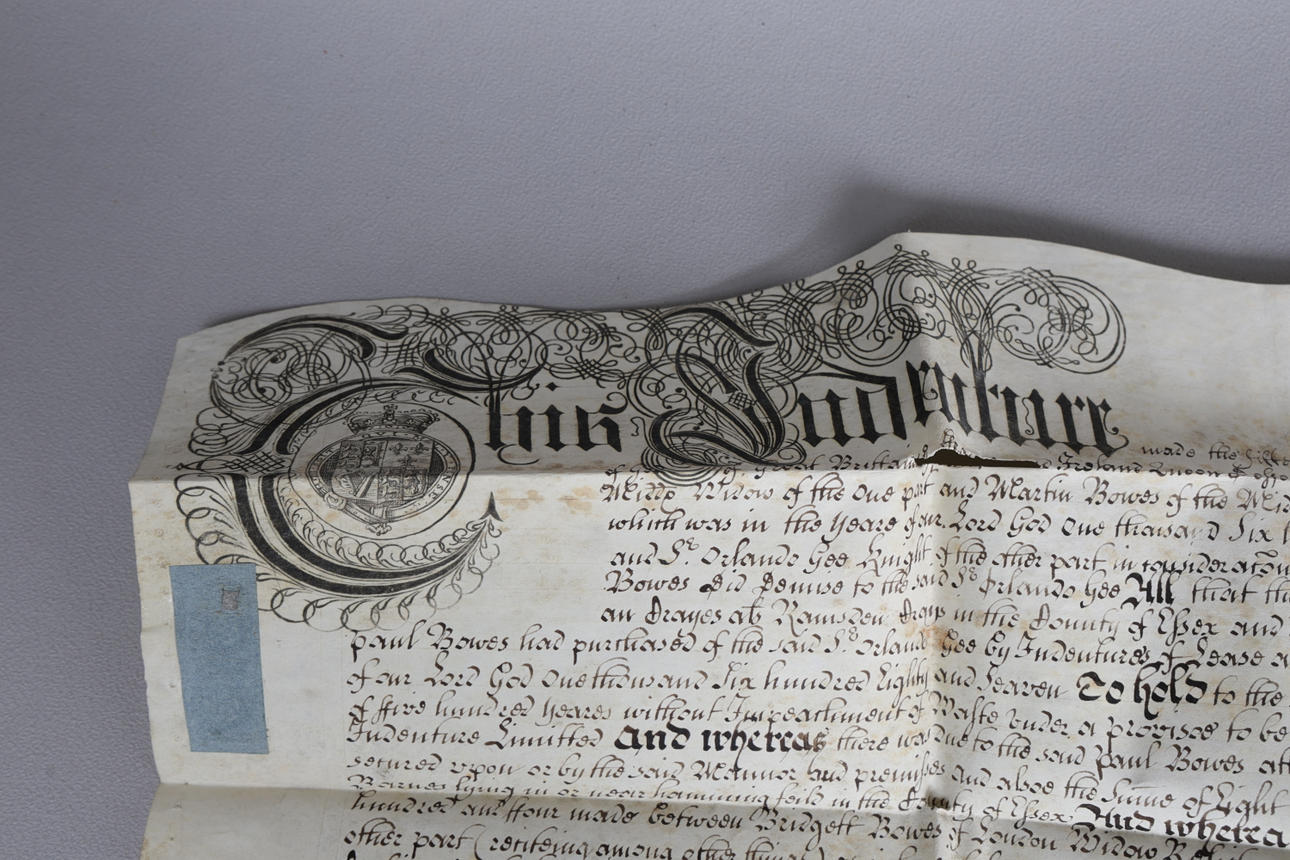 This Indenture made the
of Great Brittain Ireland Queen
Midd Widow of the one part and Martin Bowes of the
which was in the Yeare of our Lord God One thousand Six
and Sr. Orlando Gee Knight of the other part in consideration
Bowes Did Demise to the said Sr. Orlando Gee All that
Drayes als Ramsden Drays in the County of Essex and
Paul Bowes had purchased of the said Sr. Orlando Gee by Indentures of Lease
of our Lord God One thousand Six hundred Eighty and Seaven To hold to the
of ffive hundred Yeares without Impeachment of Waste under a provisoe to be
Indenture Limitted And whereas there was due to the said Paul Bowes
secured upon or by the said Mannor and premisses and aboe the Sume of Eight
Barnes lying in or near hanning feild in the County of Essex And wherea
hundred and ffour made between Bridgett Bowes of London Widow
other part (reciteing among other things)